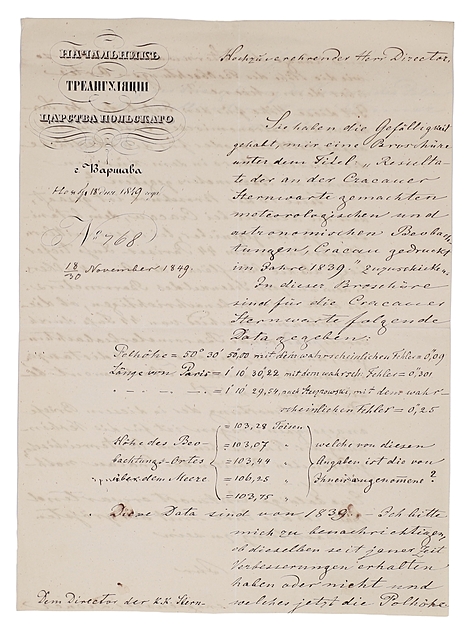 НАЧАЛЬНИКЪ
ТРЕАНГУЛЯЦІИ
ЦАРСТВА ПОЛЬСКАГО
г. Варшава
18 дня 1849 года
№ 768
18/30 November 1849.
Hochzuverehrender Herr Director.
Sie haben die Gefälligkeit
gehabt, mir eine Broschüre
unter dem Titel „Resulta-
te der an der Cracauer
Sternwarte gemachten
meteorologischen und
astronomischen Beobach-
tungen, Cracau gedruckt
im Jahre 1839." zuzuschicken.
In dieser Broschüre
sind für die Cracauer
Sternwarte folgende
Data gegeben:
Polhöhe = 50° 30' 50,00 mit dem wahrscheinlichen Fehler = 0,09
Länge von Paris = 1 10 30,22 mit dem wahrsch. Fehler = 0,301
— — — — = 1 10 29,54, nach Steczkowski, mit dem wahr-
scheinlichen Fehler = 0,25
= 103,28 Toisen
Höhe des Beo- = 103,07 " welche von diesen
bachtungs-Ortes = 103,44 " Angaben ist die von
über dem Meere = 106,25 " Ihnen angenomene?
= 103,75 "
Diese Data sind von 1839. — Ich bitte
mich zu benachrichtigen,
ob dieselben seit jener Zeit
Verbesserungen erhalten
haben oder nicht und
welches jetzt die Polhöhe
Dem Director der K.K. Stern-